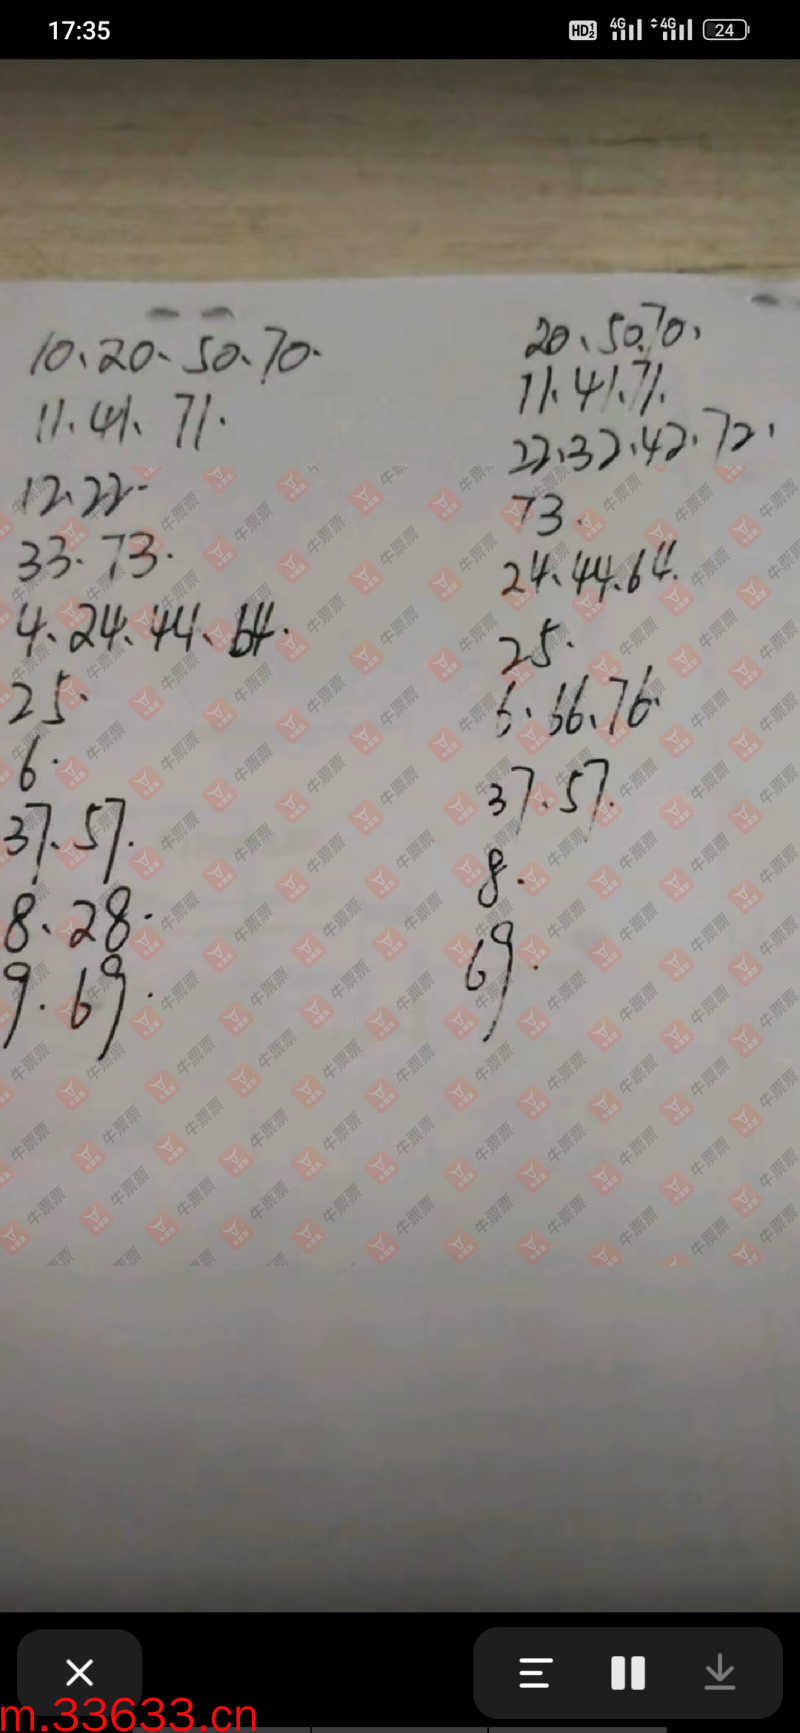 17:35
HD 1 2 4G 4G 24
10、20、50、70.
11、41、71.
12、22.
33.73.
4、24、44、64.
25.
6.
37、57.
8、28.
9.69.
20、50、70、
11、41、71.
22、32、42、72、
73.
24、44、64.
25.
6、66、76.
37、57.
8.
69.
牛票票
m.33633.cn